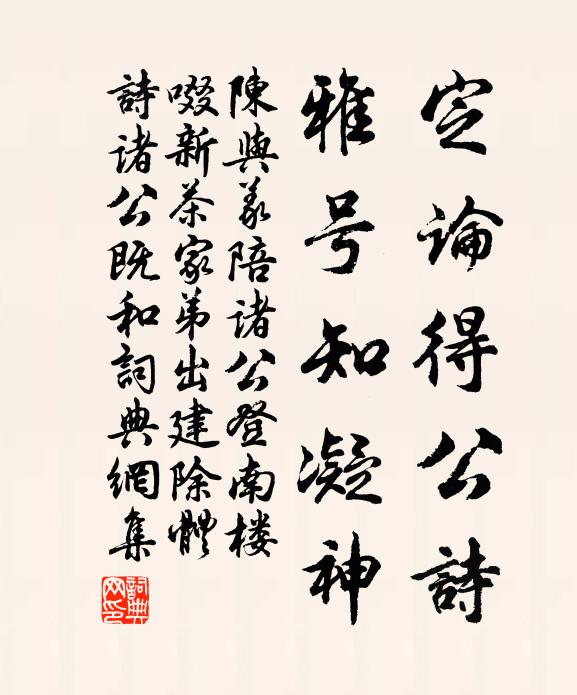 定論得公詩
雅号知凝神
陳與義陪諸公登南楼
啜新茶家弟出建除體
詩諸公既和詞典網集
詞典网印